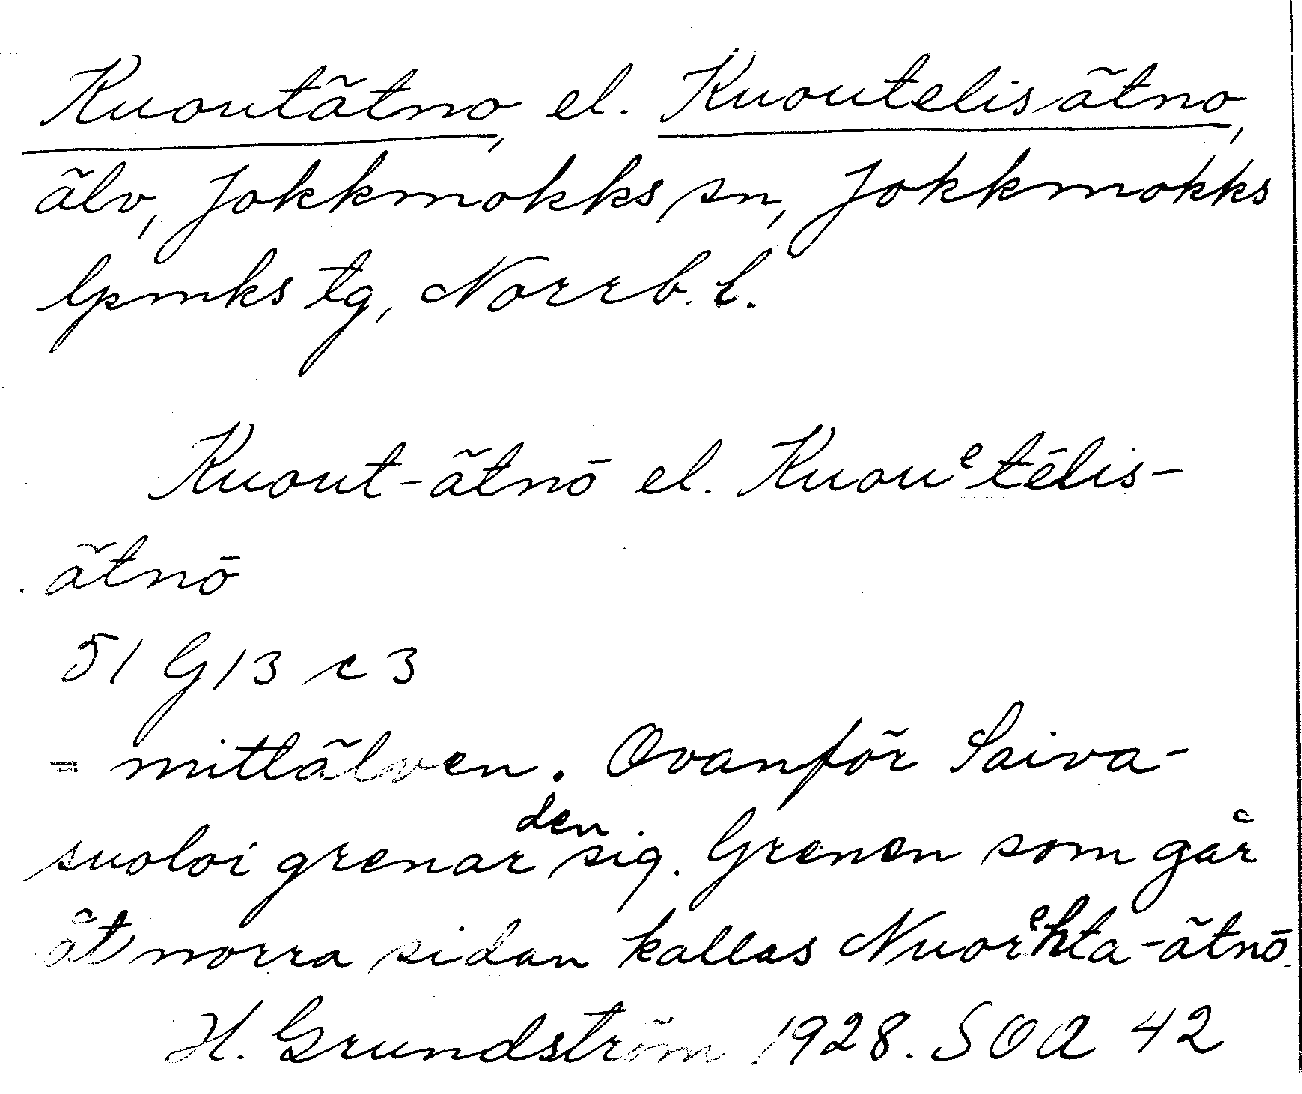 Kuoutätno, el. Kuoutelisätno,
älv, Jokkmokks sn, Jokkmokks
lpmks tg, Norrb. l.
Kuout-ätnō el. Kuouᵉtēlis-
ätnō
51 G13 c 3
= mittälven. Ovanför Saiva-
suoloi grenar den sig. Grenen som går
åt norra sidan kallas Nuorᵉhta-ätnō.
H. Grundström 1928. SOA 42